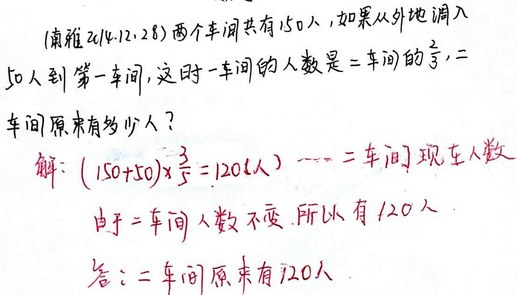 (南雅2014.12.28)两个车间共有150人,如果从外地调入
50人到第一车间,这时一车间的人数是二车间的2/3,二
车间原来有多少人?
解:(150+50)×3/5=120(人)┄┄二车间现在人数
由于二车间人数不变.所以有120人.
答:二车间原来有120人.